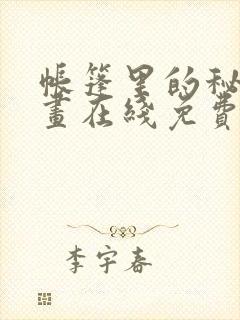 帐篷里的秘
画在线免费
李宇春